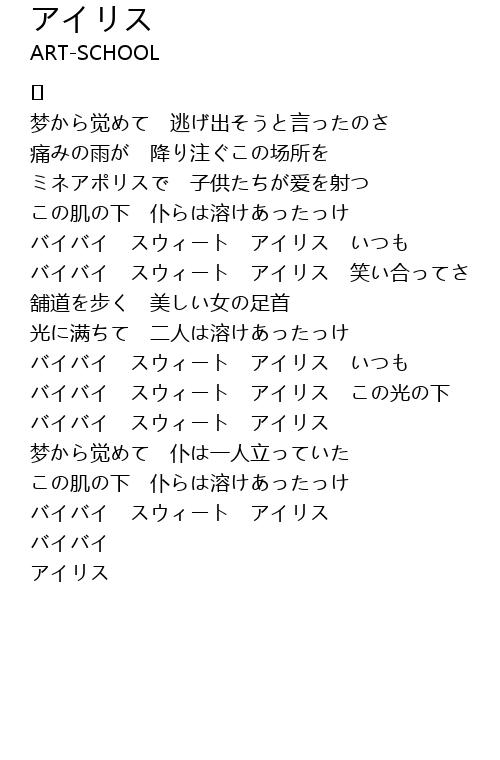 アイリス
ART-SCHOOL
梦から觉めて　逃げ出そうと言ったのさ
痛みの雨が　降り注ぐこの场所を
ミネアポリスで　子供たちが爱を射つ
この肌の下　仆らは溶けあったっけ
バイバイ　スウィート　アイリス　いつも
バイバイ　スウィート　アイリス　笑い合ってさ
舖道を歩く　美しい女の足首
光に满ちて　二人は溶けあったっけ
バイバイ　スウィート　アイリス　いつも
バイバイ　スウィート　アイリス　この光の下
バイバイ　スウィート　アイリス
梦から觉めて　仆は一人立っていた
この肌の下　仆らは溶けあったっけ
バイバイ　スウィート　アイリス
バイバイ
アイリス